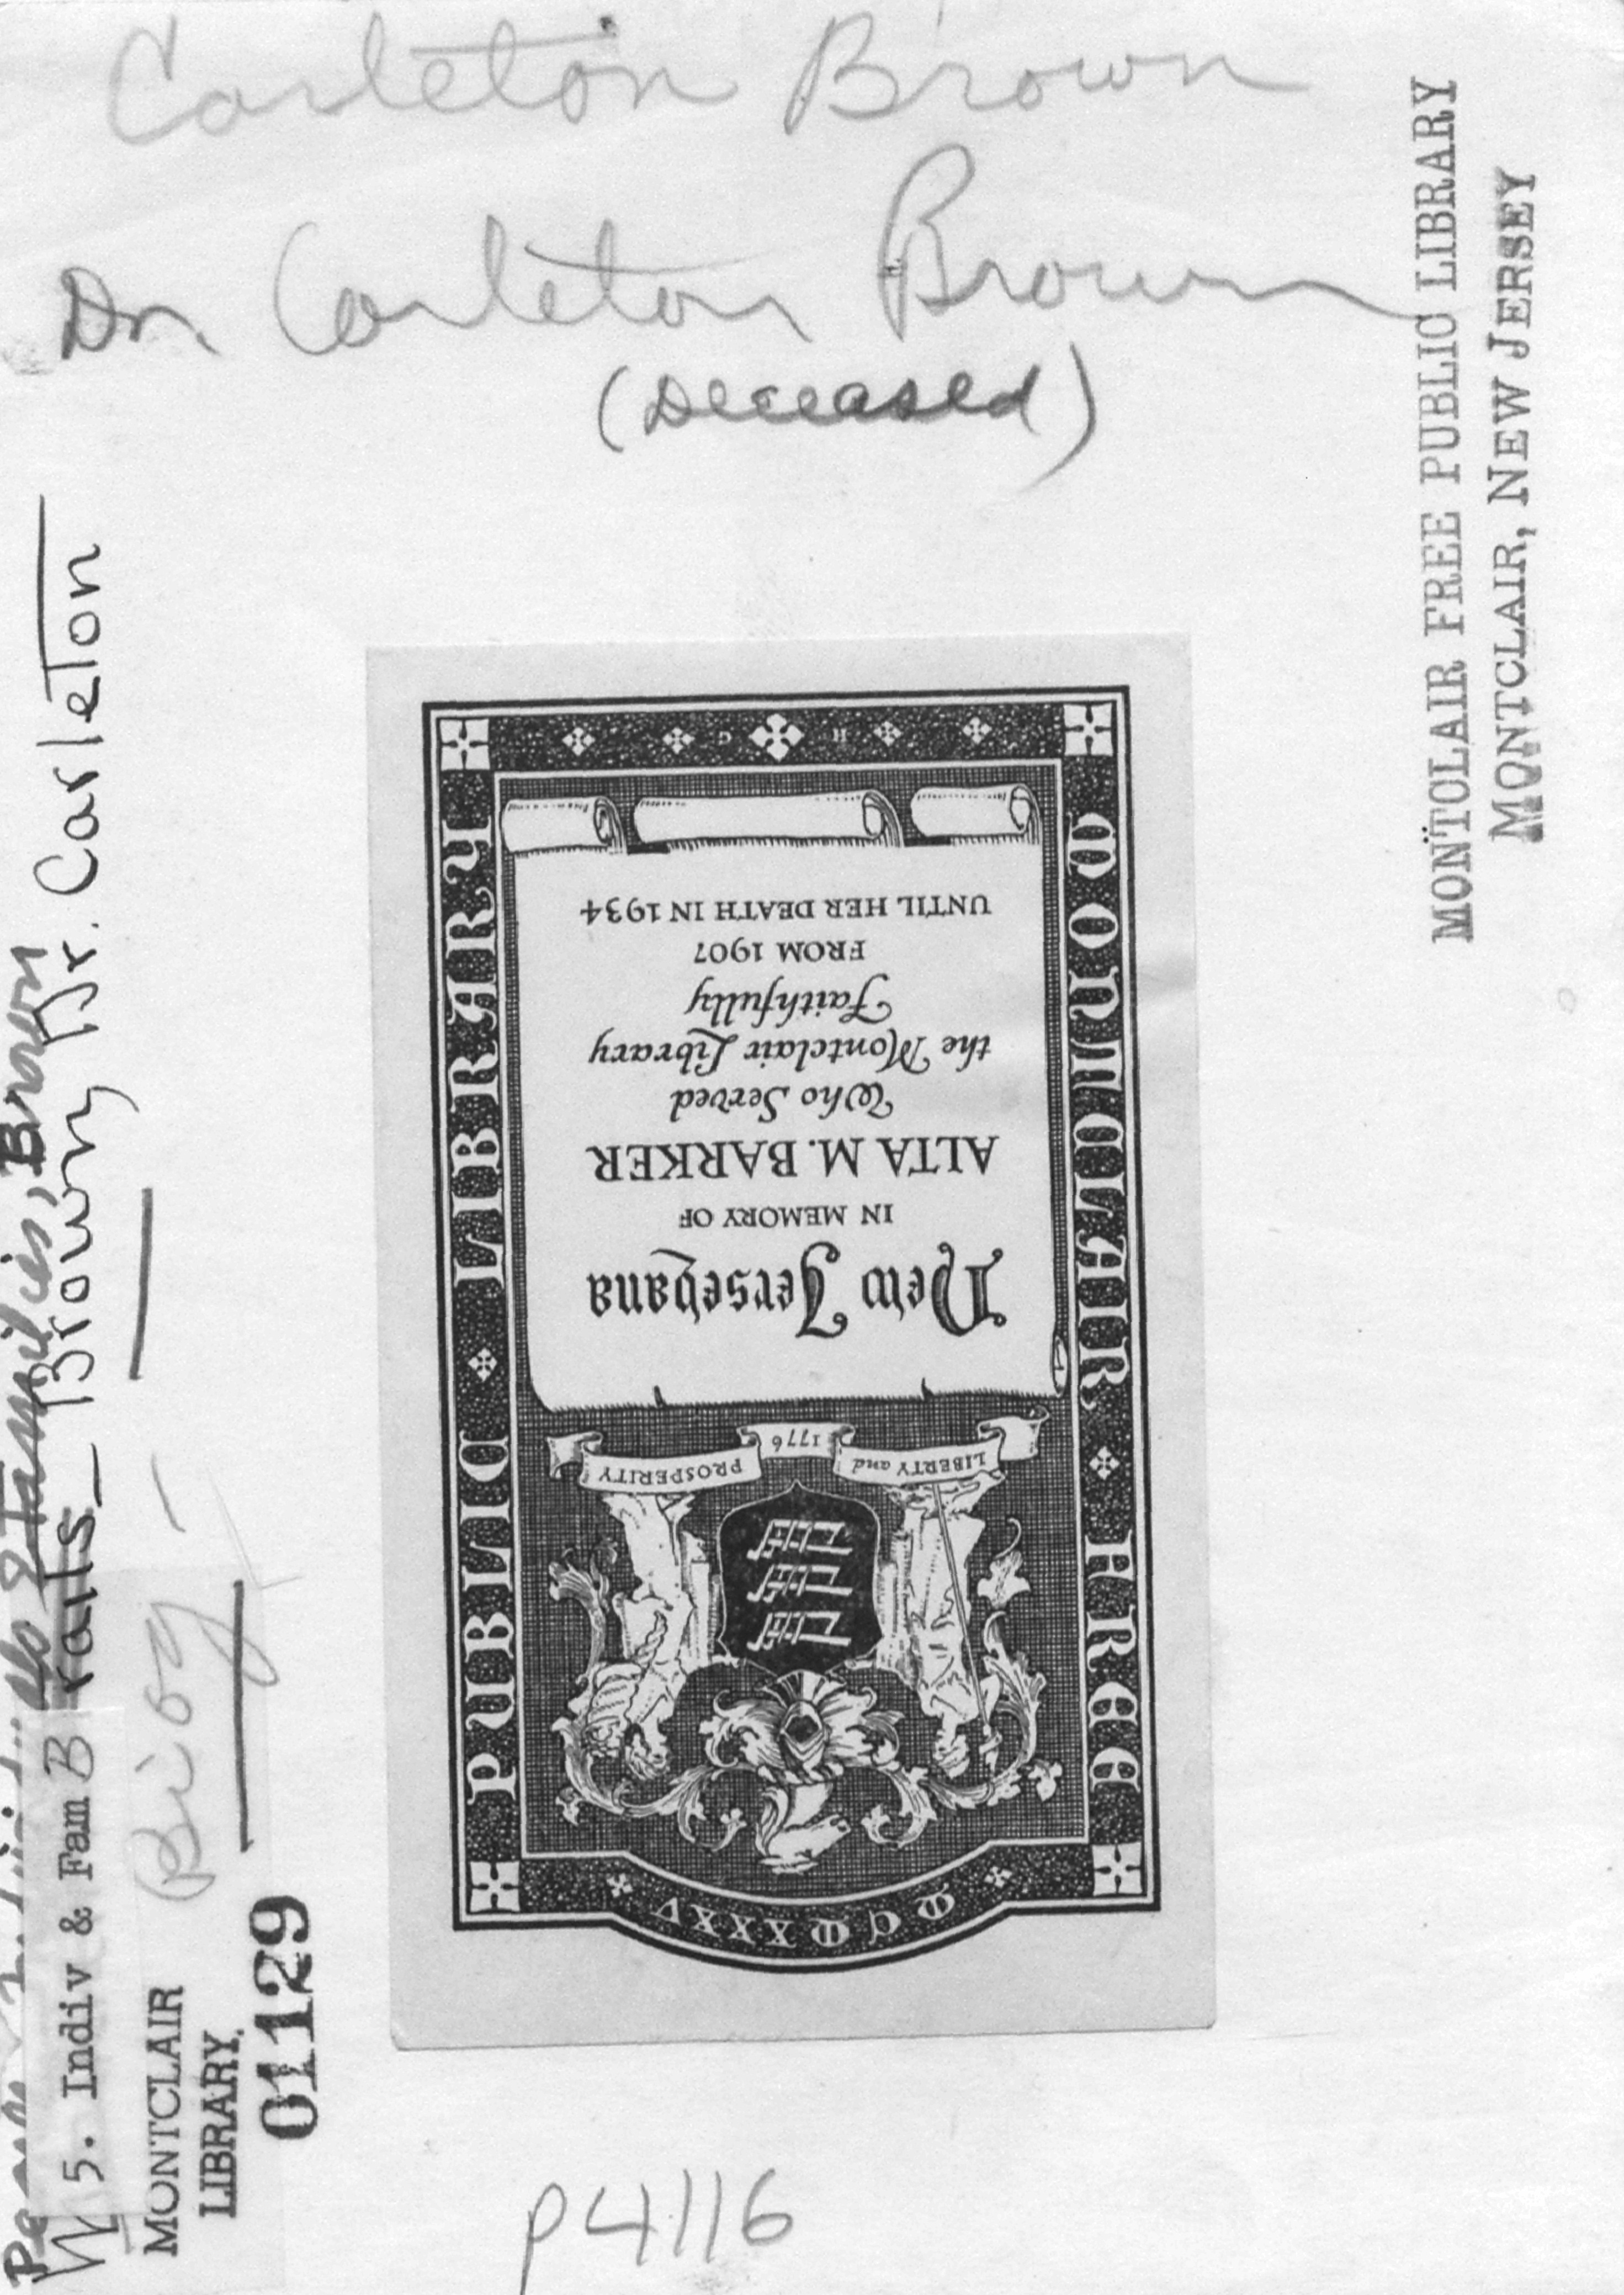 Carleton Brown
Dr. Carleton Brown
(Deceased)
MONTCLAIR FREE PUBLIC LIBRARY
MONTCLAIR, NEW JERSEY
MONTCLAIR FREE
PUBLIC LIBRARY
MCMXXXV
LIBERTY and 1776 PROSPERITY
New Jerseyana
IN MEMORY OF
ALTA M. BARKER
Who Served
the Montclair Library
Faithfully
FROM 1907
UNTIL HER DEATH IN 1934
H C
Families, Brown
5. Indiv & Fam B raits Brown, Dr. Carleton
Biog -
MONTCLAIR
LIBRARY.
01129
P4116